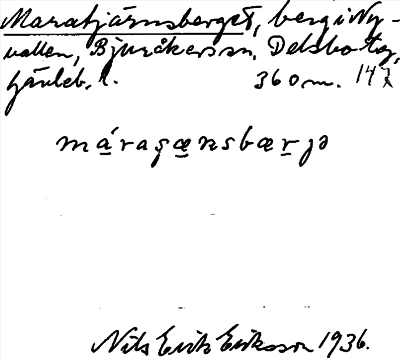 Maratjärnsberget, berg i Ny-
vallen, Bjuråkers sn, Delsbo tg,
Gävleb. l. 360 m. 147
máragænsbærjə
Nils Erik Eriksson 1936.